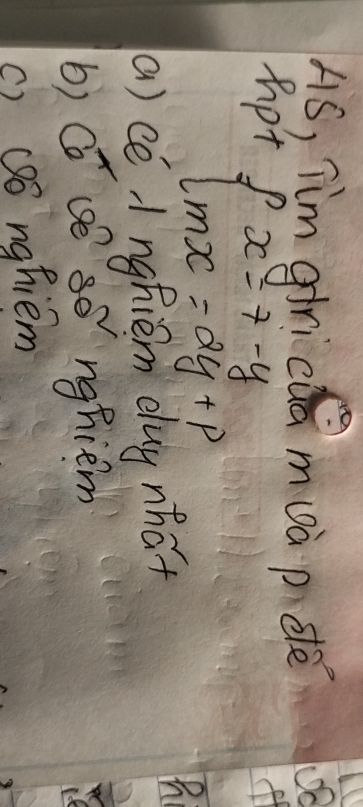 48) Tìm gtri của m và p để
hpt { x = 7 - y
mx = 2y + p
a) có 1 nghiệm duy nhất
b) Có vô số nghiệm
c) vô nghiệm